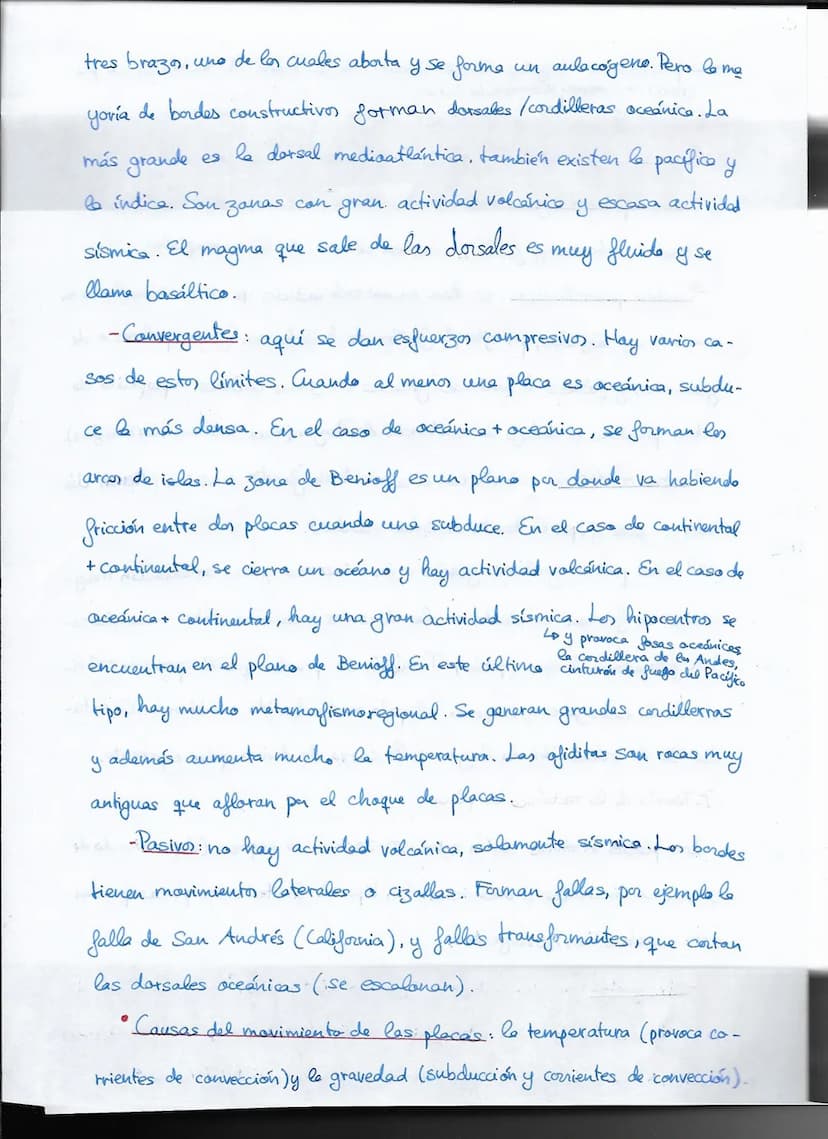 tres brazos, uno de los cuales aborta y se forma un aulacógeno. Pero la ma
yoría de bordes constructivos forman dorsales /cordilleras oceánica. La
más grande es la dorsal medioatlántica. también existen la pacífica y
la índica. Son zonas con gran actividad volcánica y escasa actividad
sísmica. El magma que sale de las dorsales es muy fluido y se
llama basáltico.
- Convergentes: aquí se dan esfuerzos compresivos. Hay varios ca-
sos de estos límites. Cuando al menos una placa es oceánica, subdu-
ce la más densa. En el caso de oceánica + oceánica, se forman los
arcos de islas. La zona de Benioff es un plano por donde va habiendo
fricción entre dos placas cuando una subduce. En el caso de continental
+ continental, se cierra un océano y hay actividad volcánica. En el caso de
oceánica + continental, hay una gran actividad sísmica. Los hipocentros se
↳ y provoca fosas oceánicas
la cordillera de los Andes,
cinturón de fuego del Pacífico
encuentran en el plano de Benioff. En este último
tipo, hay mucho metamorfismo regional. Se generan grandes cordillerras
y además aumenta mucho la temperatura. Las ofiditas son rocas muy
antiguas que afloran por el choque de placas.
- Pasivos: no hay actividad volcánica, solamente sísmica. Los bordes
tienen movimientos laterales o cizallas. Forman fallas, por ejemplo la
falla de San Andrés (California), y fallas transformantes, que cortan
las dorsales oceánicas (se escalonan).
• Causas del movimiento de las placas: la temperatura (provoca co-
rrientes de convección) y la gravedad (subducción y corrientes de convección).